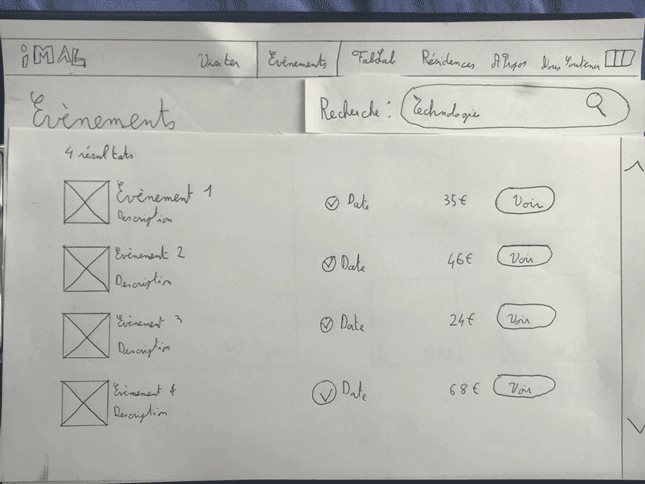 iMAL Visiter Evènements FabLab Résidences A Propos Nous Soutenir
Evènements
Recherche : Technologie
4 résultats
Evènement 1 Date 35€ Voir
Description
Evènement 2 Date 46€ Voir
Description
Evènement 3 Date 24€ Voir
Description
Evènement 4 Date 68€ Voir
Description